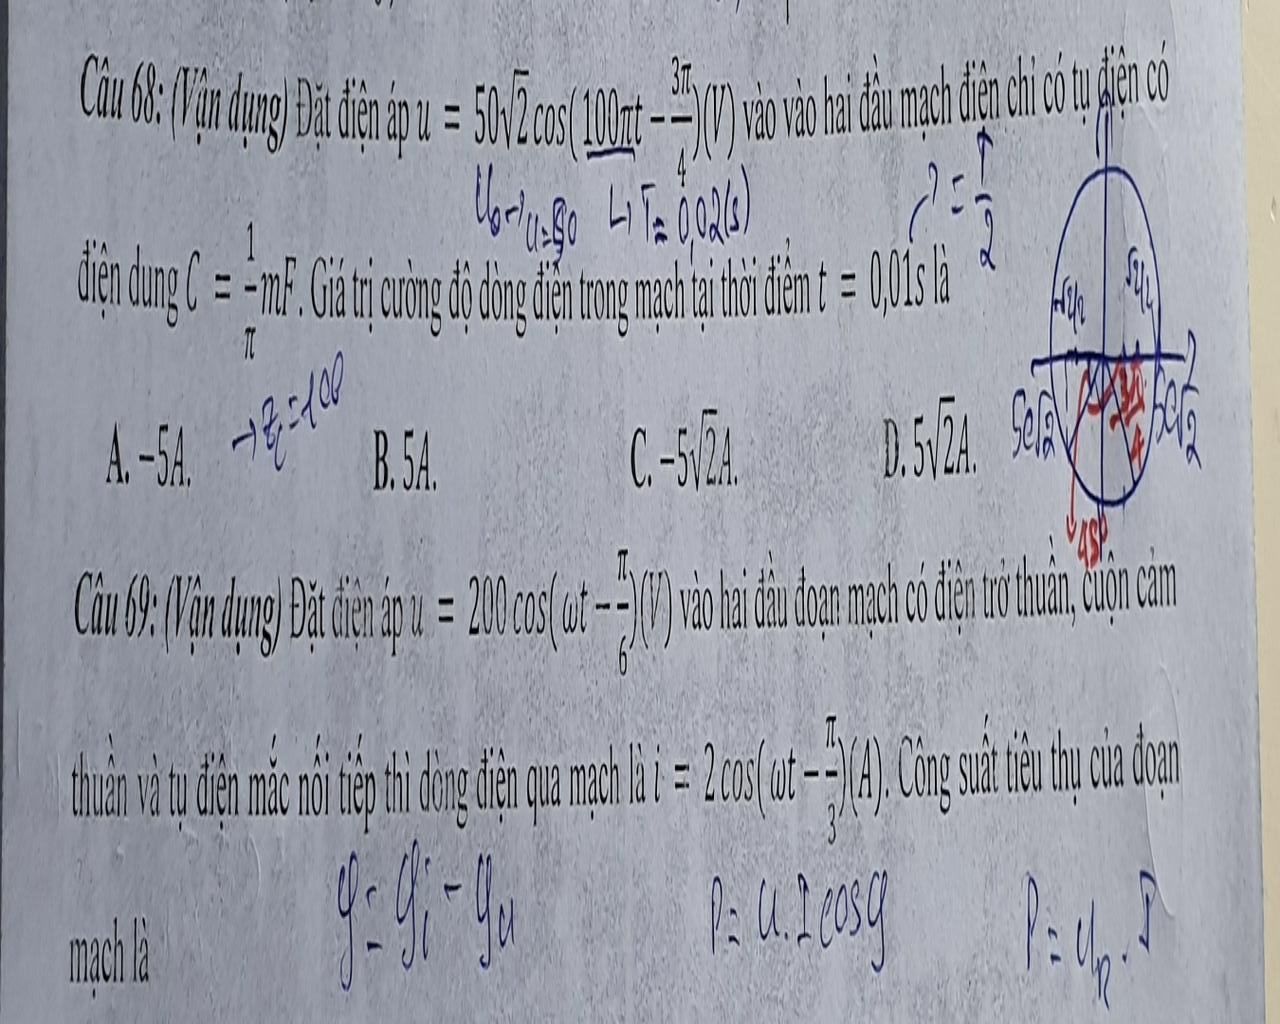 Câu 68: (Vận dụng) Đặt điện áp u = 50√2 cos(100πt − 3π/4)(V) vào vào hai đầu mạch điện chỉ có tụ điện có
U₀→u=50 ↳ T= 0,02(s)
= T/2
điện dung C = 1/π mF. Giá trị cường độ dòng điện trong mạch tại thời điểm t = 0,01s là
→ Zc=100
A. −5A. B. 5A. C. −5√2A. D. 5√2A.
50√2 3π/4 50√2
45°
Câu 69: (Vận dụng) Đặt điện áp u = 200 cos(ωt − π/6)(V) vào hai đầu đoạn mạch có điện trở thuần, cuộn cảm
thuần và tụ điện mắc nối tiếp thì dòng điện qua mạch là i = 2 cos(ωt − π/3)(A). Công suất tiêu thụ của đoạn
mạch là
φ = φi − φu P = U.I cosφ P = UR.I